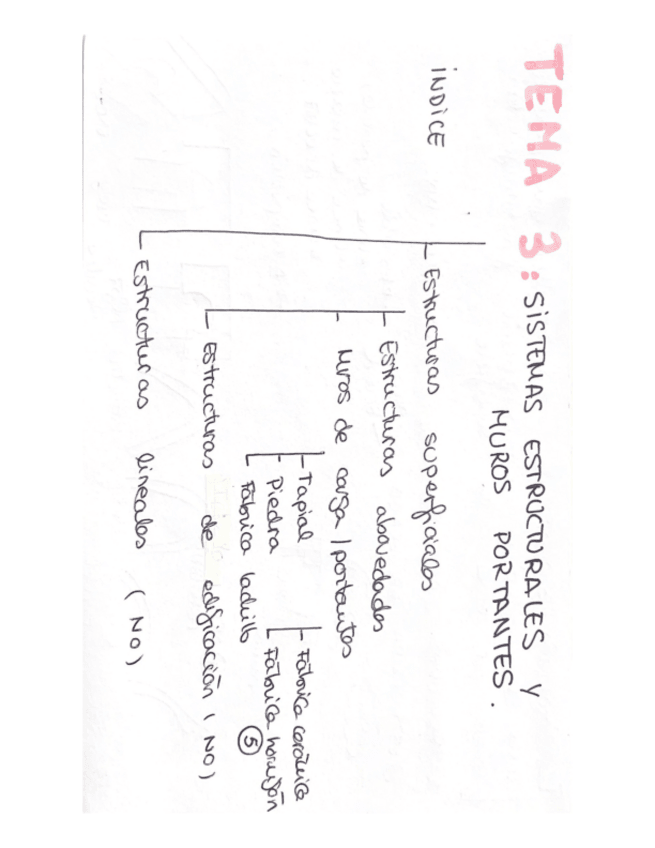 TEMA 3: SISTEMAS ESTRUCTURALES Y
MUROS PORTANTES.
ÍNDICE
Estructuras superficiales
Estructuras abovedadas
Muros de carga / portantes
Tapial
Piedra
Fábrica ladrillo
Fábrica cerámica
Fábrica hormigón
5
Estructuras de edificación (NO)
Estructuras lineales (NO)